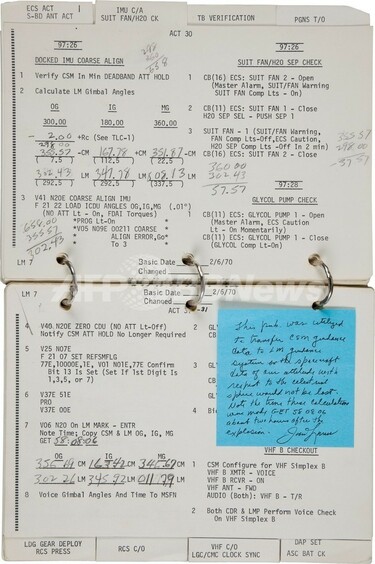 ECS ACT
S-BD ANT ACT
IMU C/A
SUIT FAN/H2O CK
TB VERIFICATION
PGNS T/O
ACT 30
97:26
DOCKED IMU COARSE ALIGN
1 Verify CSM In Min DEADBAND ATT HOLD
2 Calculate LM Gimbal Angles
OG IG MG
300.00 180.00 360.00
- 2.00 +Rc (See TLC-1)
298.00
355.57 -CM 167.78 +CM 351.87 -CM
(7.5) (112.5) (22.5)
302.43 LM 347.78 LM 008.13 LM
(292.5) (292.5) (337.5)
3 V41 N20E COARSE ALIGN IMU
F 21 22 LOAD ICDU ANGLES OG,IG,MG (.01°)
(NO ATT Lt - On, FDAI Torques)
* *PROG Lt-On *
* *V05 N09E 00211 COARSE *
* ALIGN ERROR,Go *
To 3
298.00
658.00
355.57
302.43
97:26
SUIT FAN/H2O SEP CHECK
1 CB(16) ECS: SUIT FAN 2 - Open
(Master Alarm, SUIT/FAN Warning
SUIT FAN Comp Lts - On)
2 CB(11) ECS: SUIT FAN 1 - Close
H2O SEP SEL - PUSH SEP 1
3 SUIT FAN - 1 (SUIT/FAN Warning,
FAN Comp Lts-Off,ECS Caution,
H2O SEP Comp Lts -Off In 2 min)
CB(16) ECS: SUIT FAN 2 - Close
355.57
298.00
57.57
360.00
302.43
57.57
97:28
GLYCOL PUMP CHECK
1 CB(11) ECS: GLYCOL PUMP 1 - Open
(Master Alarm, ECS Caution
Lt - On Momentarily)
CB(11) ECS: GLYCOL PUMP 1 - Close
(GLYCOL Comp Lt-On)
LM 7
Basic Date 2/6/70
Changed
LM 7
Basic Date 2/6/70
Changed
ACT 31
4 V40 N20E ZERO CDU (NO ATT Lt-Off)
Notify CSM ATT HOLD No Longer Required
5 V25 N07E
F 21 07 SET REFSMFLG
77E,10000E,1E, V01 N01E,77E Confirm
Bit 13 Is Set (If 1st Digit Is
1,3,5, or 7)
6 V37E 51E
PRO
V37E 00E
7 V06 N20 On LM MARK - ENTR
Note Time; Copy CSM & LM OG, IG, MG
GET 58:08:06
OG IG MG
CM CM CM
LM LM LM
8 Voice Gimbal Angles And Time To MSFN
2
3
4
This page was utilized
to transfer CSM guidance
data to LM guidance
system so the spacecraft
data of our attitude with
respect to the celestial
sphere would not be lost.
Note the time these calculations
were made GET 58:08:06
about two hours after the
explosion.
VHF B CHECKOUT
1 CSM Configure for VHF Simplex B
VHF B XMTR - VOICE
VHF B RCVR - ON
VHF ANT - FWD
AUDIO (Both): VHF B - T/R
2 Both CDR & LMP Perform Voice Check
On VHF Simplex B
LDG GEAR DEPLOY
RCS PRESS
RCS C/O
VHF C/O
LGC/CMC CLOCK SYNC
DAP SET
ASC BAT CK